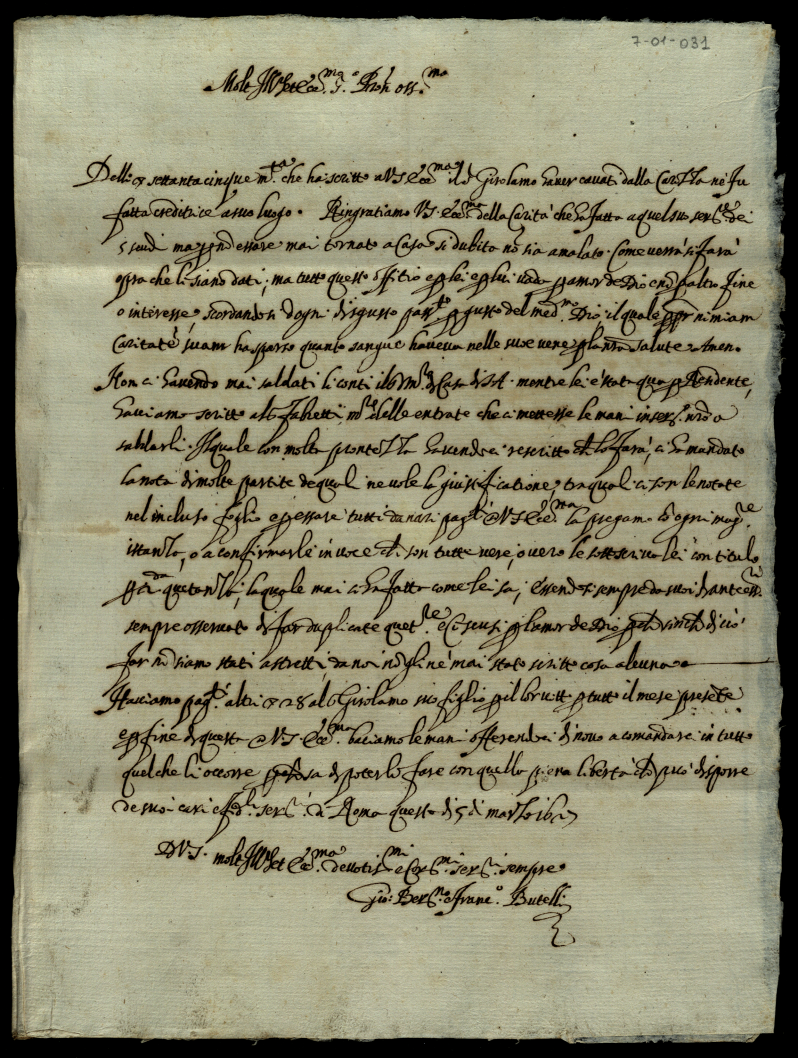 7-01-031
Molt Ill.re et Ecc.mo S.r Pron oss.mo
Delli ▽ settanta cinque m.ta che ha scritto a V S Ecc.ma il S. Girolamo haver cavati dalla Carta ne fu
fatta creditrice a suo luogo. Ringratiamo V S Ecc.ma della Carità che ha fatta a quel suo ser.re dei
5 scudi ma p nõ essere mai tornato a Casa si dubita nõ sia amalato. Come verrà si farà
opra che li siano dati; ma tutto questo offitio e p lei e p lui vada p amor de Dio e nõ p altro fine
o interesse, scordandosi d'ogni disgusto pas.to p gusto del med.mo Dio il quale ppr nimiam
Caritatē suam ha sparso quanto sangue haveva nelle sue vene p la nrã salute Amen.
Non ci havendo mai saldati li conti il m.ro di Casa di S A. mentre lei è stata qua p Residente,
haviamo scritto al S Fabretti m.ro delle entrate che ci mettesse le mani in ser. nrõ a
saldarli. Il quale con molta prontezza havendoci rescritto ch lo farà, ci ha mandato
la nota di molte partite de quali ne vole la giustificatione, tra quali ci son le notate
nel incluso foglio e p essere tutti danari pag.ti a V S Ecc.ma la pregamo cõ ogni mag.re
istanza, o a confirmarle in voce ch son tutte vere, o vero le sottoscriva lei con titulo
di quetanza, la quale mai ci ha fatta come lei sa, essendosi sempre da suoi antecess.ri
sempre osservato di far duplicate quet.ze e ci scusi p l'amor de Dio
far nõ siamo stati astretti, da noi nõ gli né mai stato scritto cosa alcuna
Hasciamo pag.ti altri ▽ 28 al S Girolamo suo figlio p il tutto il mese presēte
e p fine di questa a V. S. Ecc.ma baciamo le mani offerendoci di novo a comandarci in tutto
quel che li occorre di poterlo fare con quella piena liberta ch può disporre
de suoi cari e ser.ri di Roma questo di 5 di marzo
D V S. molt Ill.re et Ecc.ma devotis.mi e Cor.mi ser.ri sempre
Gio: Ber.no e Franc.o Butelli